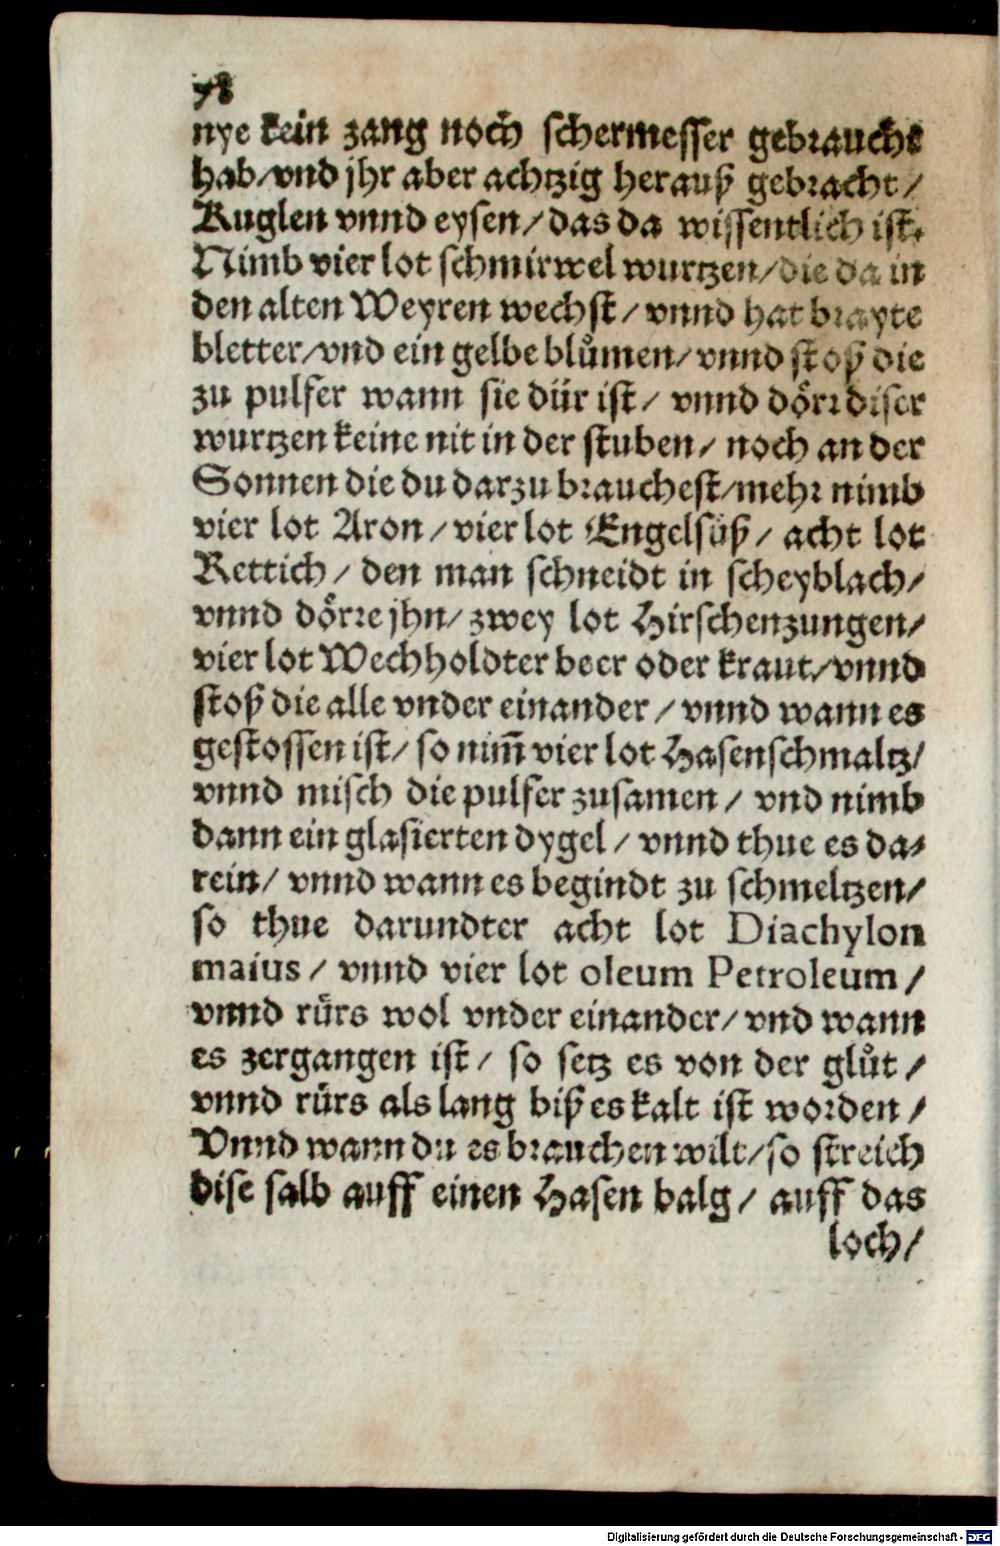 78
nye kein zang noch schermesser gebraucht
hab/vnd jhr aber achtzig herauß gebracht/
Kuglen vnnd eysen/das da wissentlich ist.
Nimb vier lot schmirwel wurtzen/die da in
den alten Weyren wechst/vnnd hat brayte
bletter/vnd ein gelbe blůmen/vnnd stoß die
zu pulfer wann sie dür ist/ vnnd dörr diser
wurtzen keine nit in der stuben/ noch an der
Sonnen die du darzu brauchest/mehr nimb
vier lot Aron/vier lot Engelsüß/ acht lot
Rettich/ den man schneidt in scheyblach/
vnnd dörre jhn/ zwey lot Hirschenzungen/
vier lot Wechholdter beer oder kraut/vnnd
stoß die alle vnder einander/vnnd wann es
gestossen ist/ so nim̃ vier lot Hasenschmaltz/
vnnd misch die pulfer zusamen/ vnd nimb
dann ein glasierten dygel/ vnnd thue es da-
rein/ vnnd wann es begindt zu schmeltzen/
so thue darundter acht lot Diachylon
maius/ vnnd vier lot oleum Petroleum/
vnnd rürs wol vnder einander/ vnd wann
es zergangen ist/ so setz es von der glůt/
vnnd rürs als lang biß es kalt ist worden/
Vnnd wann du es brauchen wilt/so streich
dise salb auff einen Hasen balg/ auff das
loch/
Digitalisierung gefördert durch die Deutsche Forschungsgemeinschaft - DFG